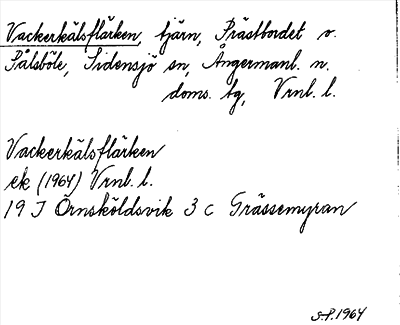 Vackerkälsflärken, tjärn, Prästbordet o.
Pålsböle, Sidensjö sn, Ångermanl. n.
doms. tg, Vrnl. l.
Vackerkälsflärken
ek (1964) Vrnl. l.
19 J Örnsköldsvik 3 c Grässemyran
S-P. 1964